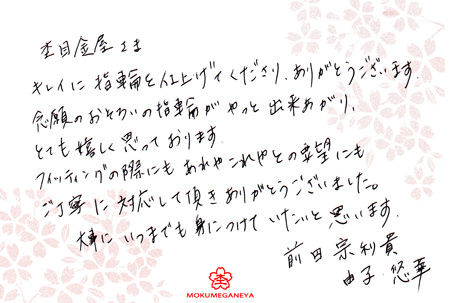 杢目金屋さま
キレイに指輪を仕上げてくださり、ありがとうございます。
念願のおそろいの指輪がやっと出来あがり、
とても嬉しく思っております。
フィッティングの際にもあれやこれやとの要望にも
ご丁寧に対応して頂きありがとうございました。
大事にいつまでも身につけていたいと思います。
前田宗利貴
由子 悠華
MOKUMEGANEYA